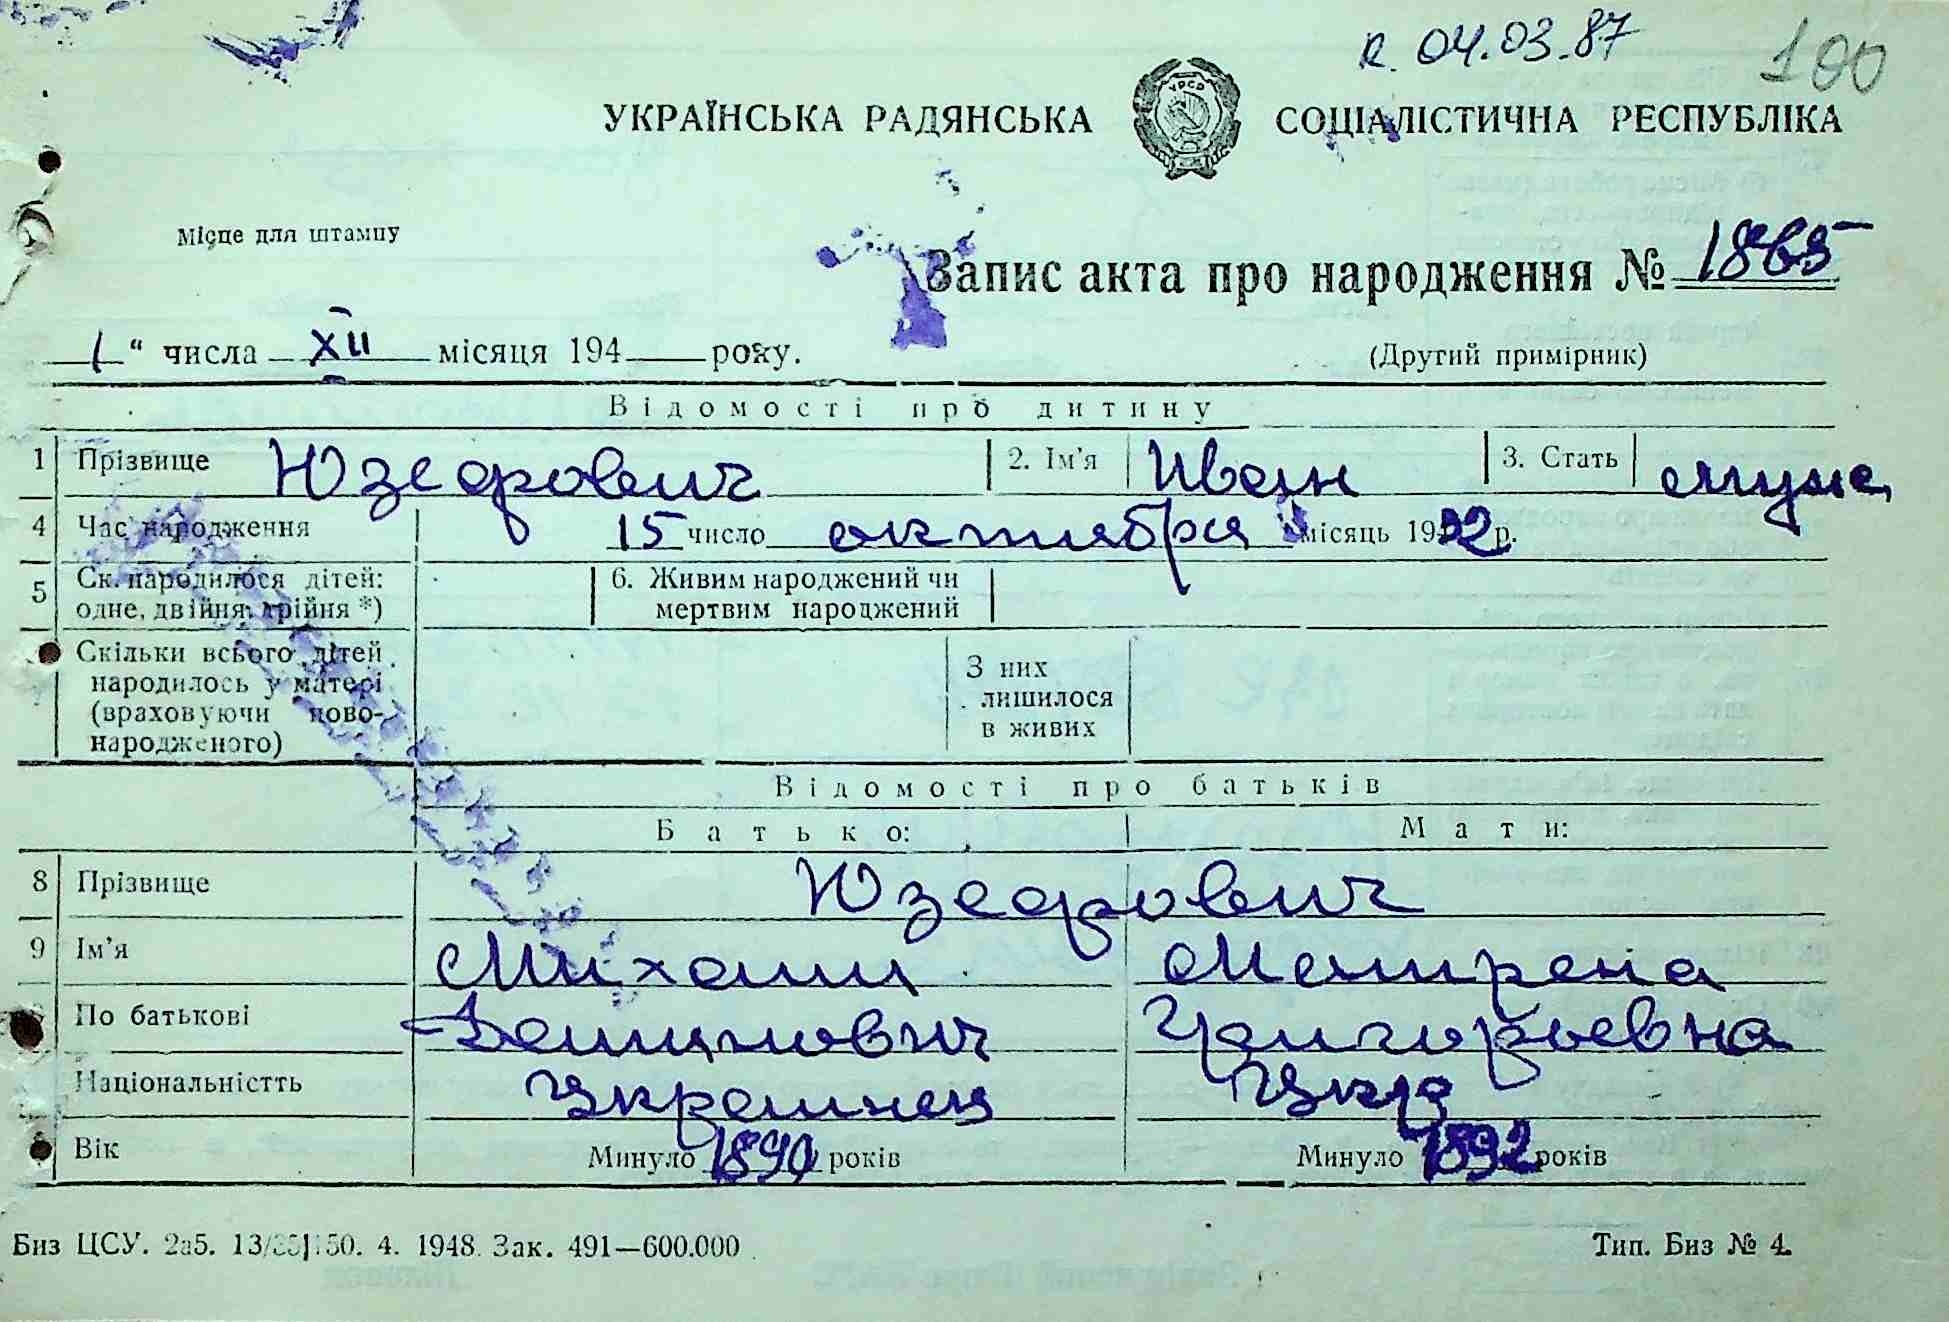 к. 04.03.87 100
УКРАЇНСЬКА РАДЯНСЬКА СОЦІАЛІСТИЧНА РЕСПУБЛІКА
УРСР
Місце для штампу
Запис акта про народження № 1865
1 " числа XII місяця 194 року. (Другий примірник)
Відомості про дитину
1 Прізвище Юзефович 2. Ім'я Иван 3. Стать муж.
4 Час народження 15 число октября місяць 1932 р.
5 Ск. народилося дітей: 6. Живим народжений чи
одне, двійня, трійня *) мертвим народжений
Скільки всього дітей З них
народилось у матері лишилося
(враховуючи ново- в живих
народженого)
Відомості про батьків
Батько: Мати:
8 Прізвище Юзефович
9 Ім'я Михаил Мотрена
По батькові Григорьевна
Національністть Украинец Укр
Вік Минуло 1890 років Минуло 1892 років
Биз ЦСУ. 2а5. 50. 4. 1948. Зак. 491—600.000 Тип. Биз № 4.